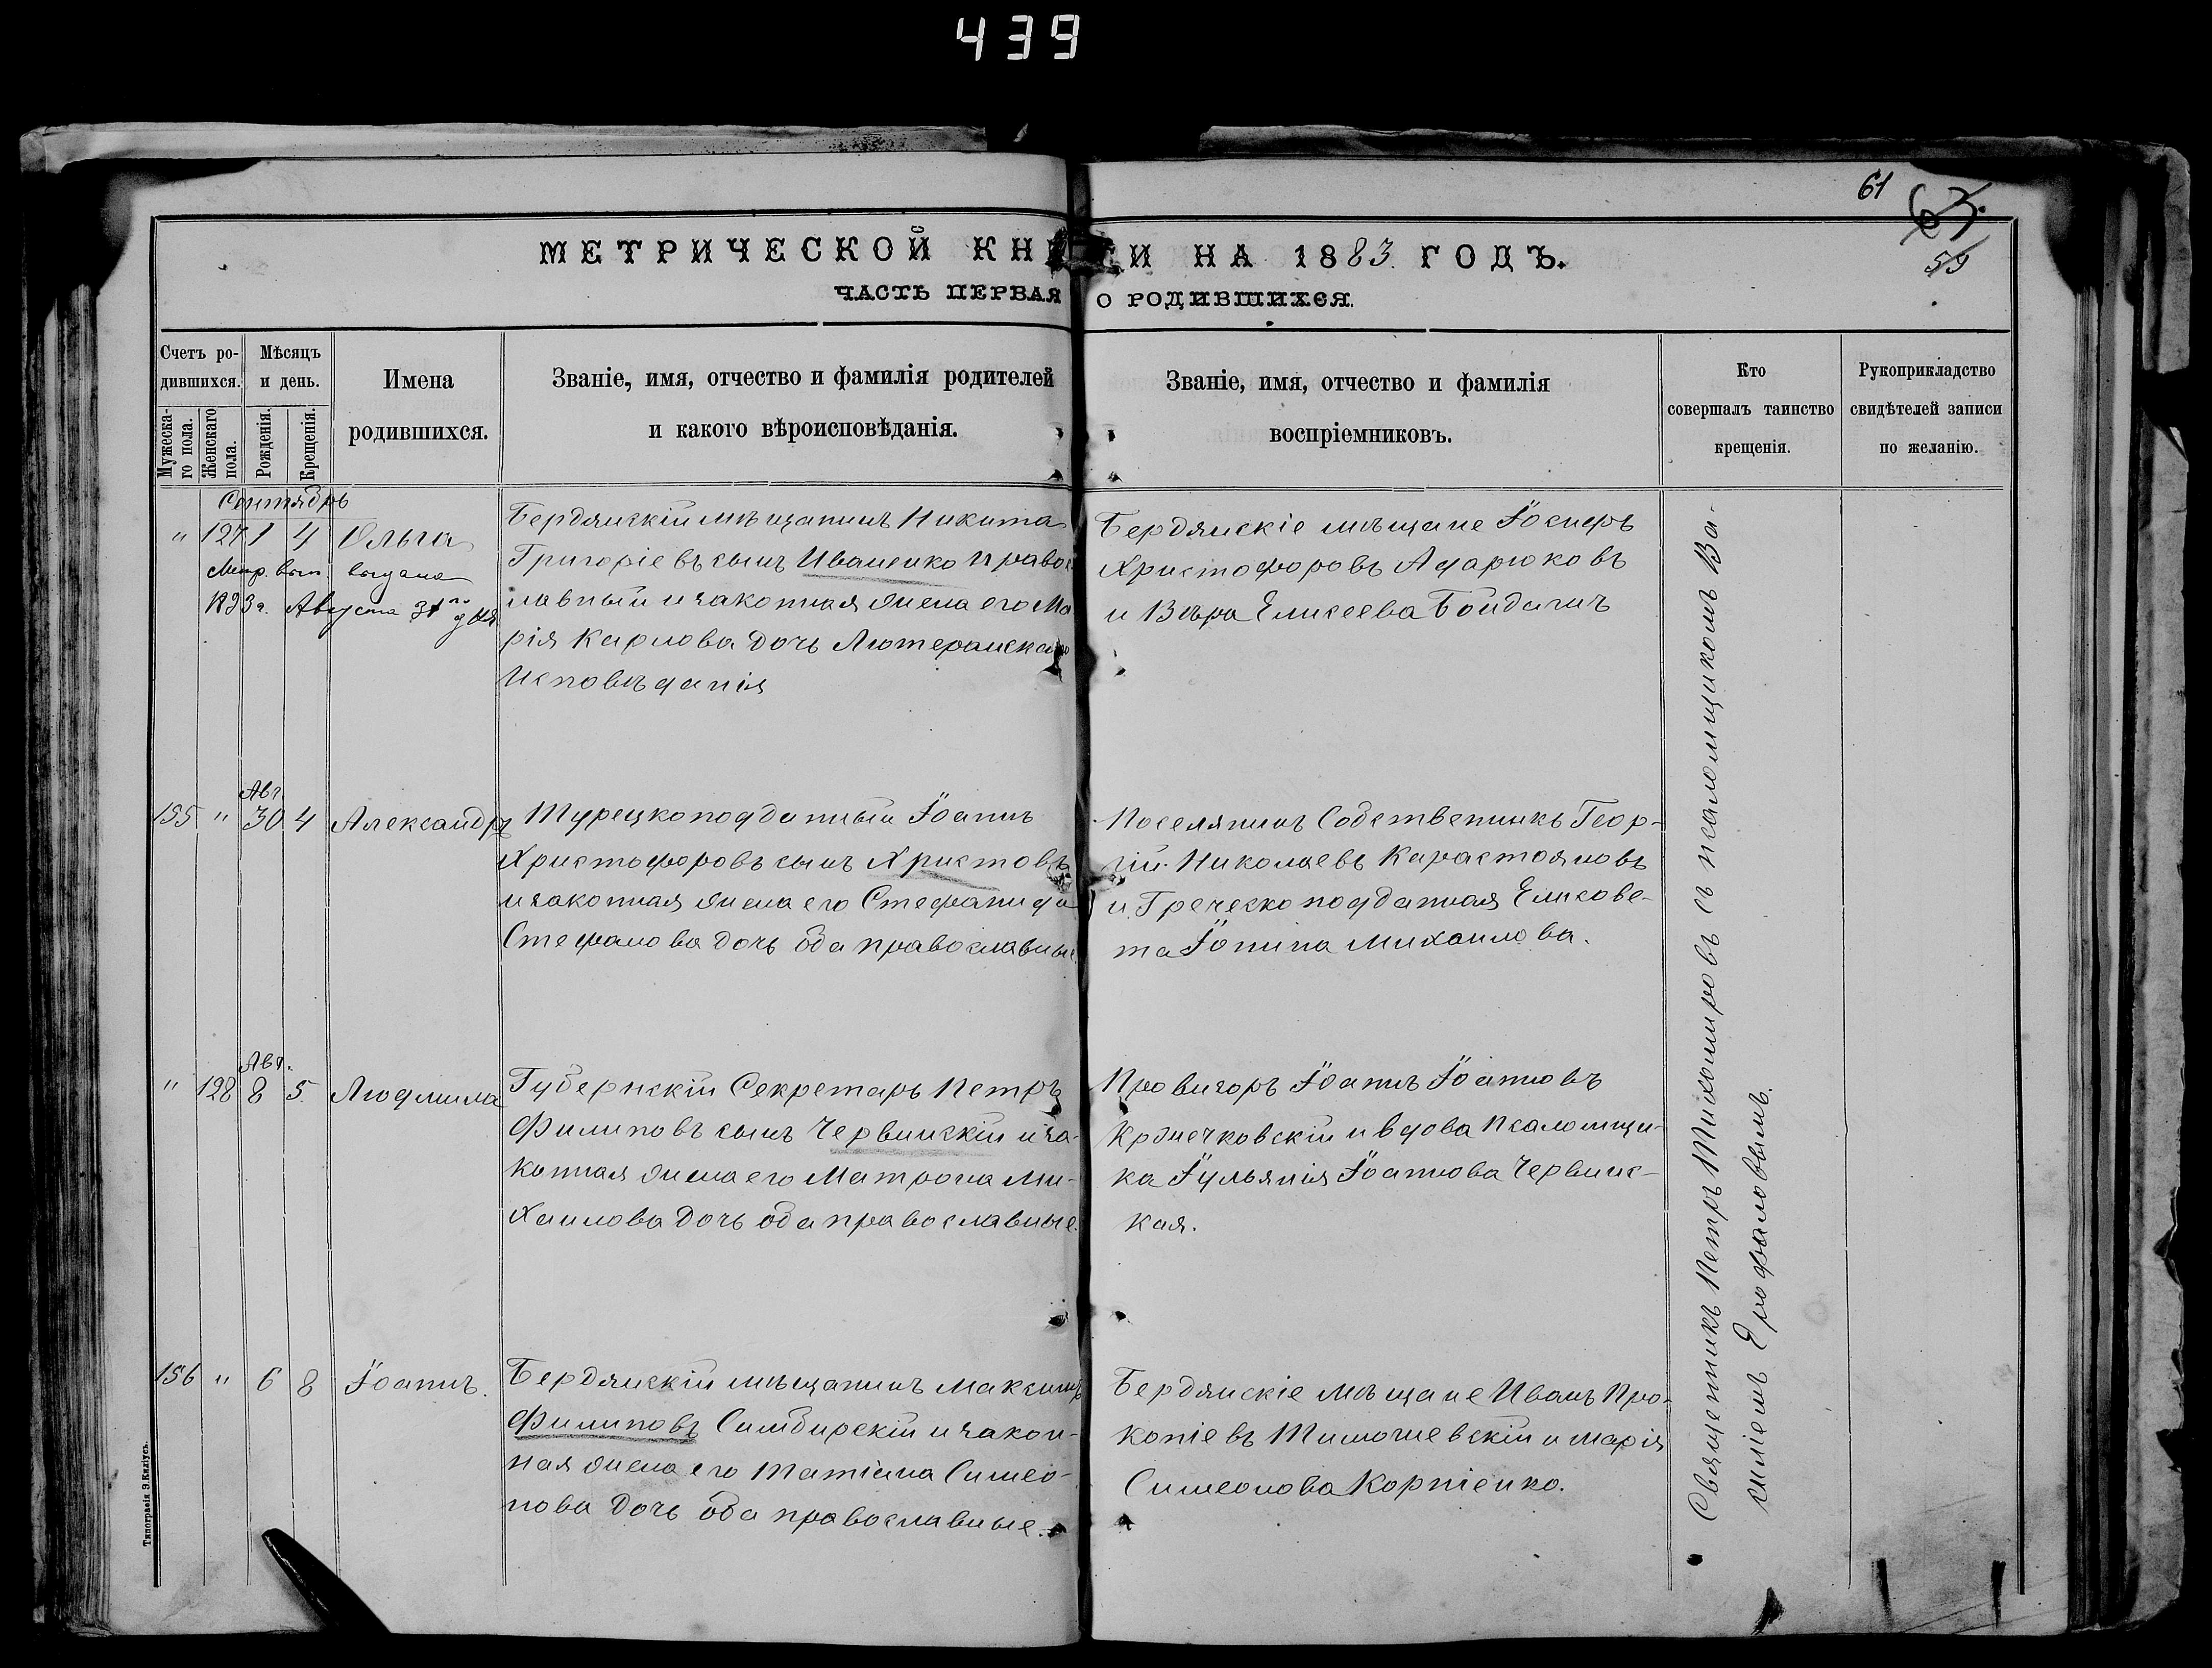 439
61
63.
59
МЕТРИЧЕСКОЙ КНИГИ НА 1883 ГОДЪ.
ЧАСТЬ ПЕРВАЯ О РОДИВШИХСЯ.
Счетъ ро-
дившихся.
Мужеска-
го пола.
Женскаго
пола.
Мѣсяцъ
и день.
Рожденія.
Крещенія.
Имена
родившихся.
Званіе, имя, отчество и фамилія родителей
и какого вѣроисповѣданія.
Званіе, имя, отчество и фамилія
воспріемниковъ.
Кто
совершалъ таинство
крещенія.
Рукоприкладство
свидѣтелей записи
по желанію.
Сентябрь
" 127 1 4 Ольга
Метр. вып. выдана
1893 г. Августа 31 го дня
Бердянскій мѣщанинъ Никита
Григоріевъ сынъ Иваненко правос
лавный и законная жена его Ма
рія Карлова дочь Лютеранскаго
Исповѣданія
Бердянскіе мѣщане Іосифъ
Христофоровъ Адарюковъ
и Вѣра Елисеева
Авг.
155 " 30 4 Александръ
Турецкоподданный Іоаннъ
Христофоровъ сынъ Христовъ
и законная жена его Стефанида
Стефанова дочь оба православные.
Поселянинъ Собственникъ Геор-
гій Николаевъ Карастояновъ
и Греческоподданная Елисаве-
та Іоннина Михаилова.
Авг.
" 128 8 5. Людмила
Губернскій Секретарь Петръ
Филиповъ сынъ Червинскій и за-
конная жена его Матрона Ми-
хаилова дочь оба православные.
Провизоръ Іоаннъ Іоанновъ
Кржечковскій и вдова Псаломщи-
ка Іульянія Іоаннова Червинс-
кая.
156 " 6 8 Іоаннъ.
Бердянскій мѣщанинъ Максимъ
Филиповъ Симбирскій и закон-
ная жена его Татіана Симео-
нова дочь оба православные.
Бердянскіе мѣщане Иванъ Про-
копіевъ и Марія
Симеонова Корніенко.
Священникъ Петръ Тихомировъ съ псаломщикомъ Ва-
силіемъ Ерофаловымъ.
Типографія Э.Киліусъ.